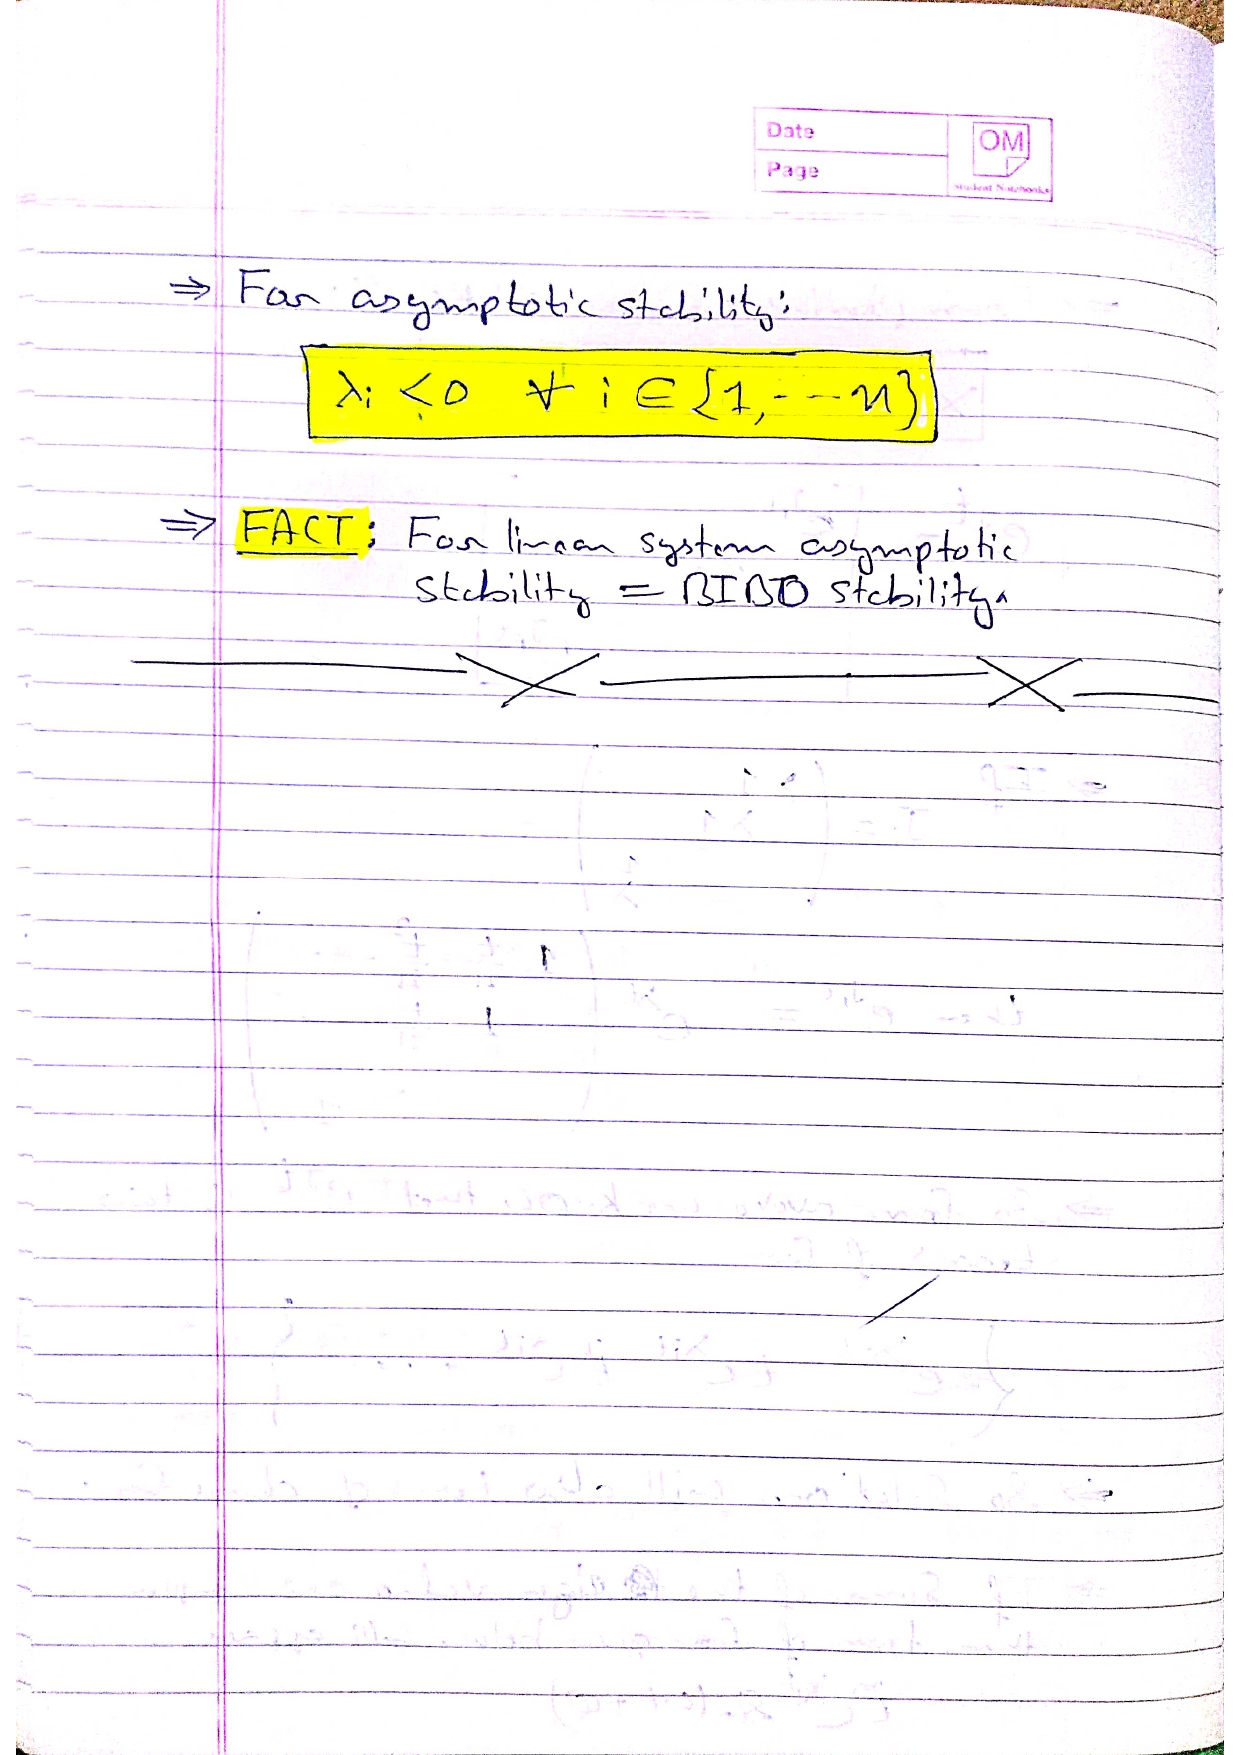 Date
OM
Page
Student Notebooks
⇒ For asymptotic stability:
λi < 0 ∀ i ∈ {1, --- n}
⇒ FACT: For linear system asymptotic
stability = BIBO stability.